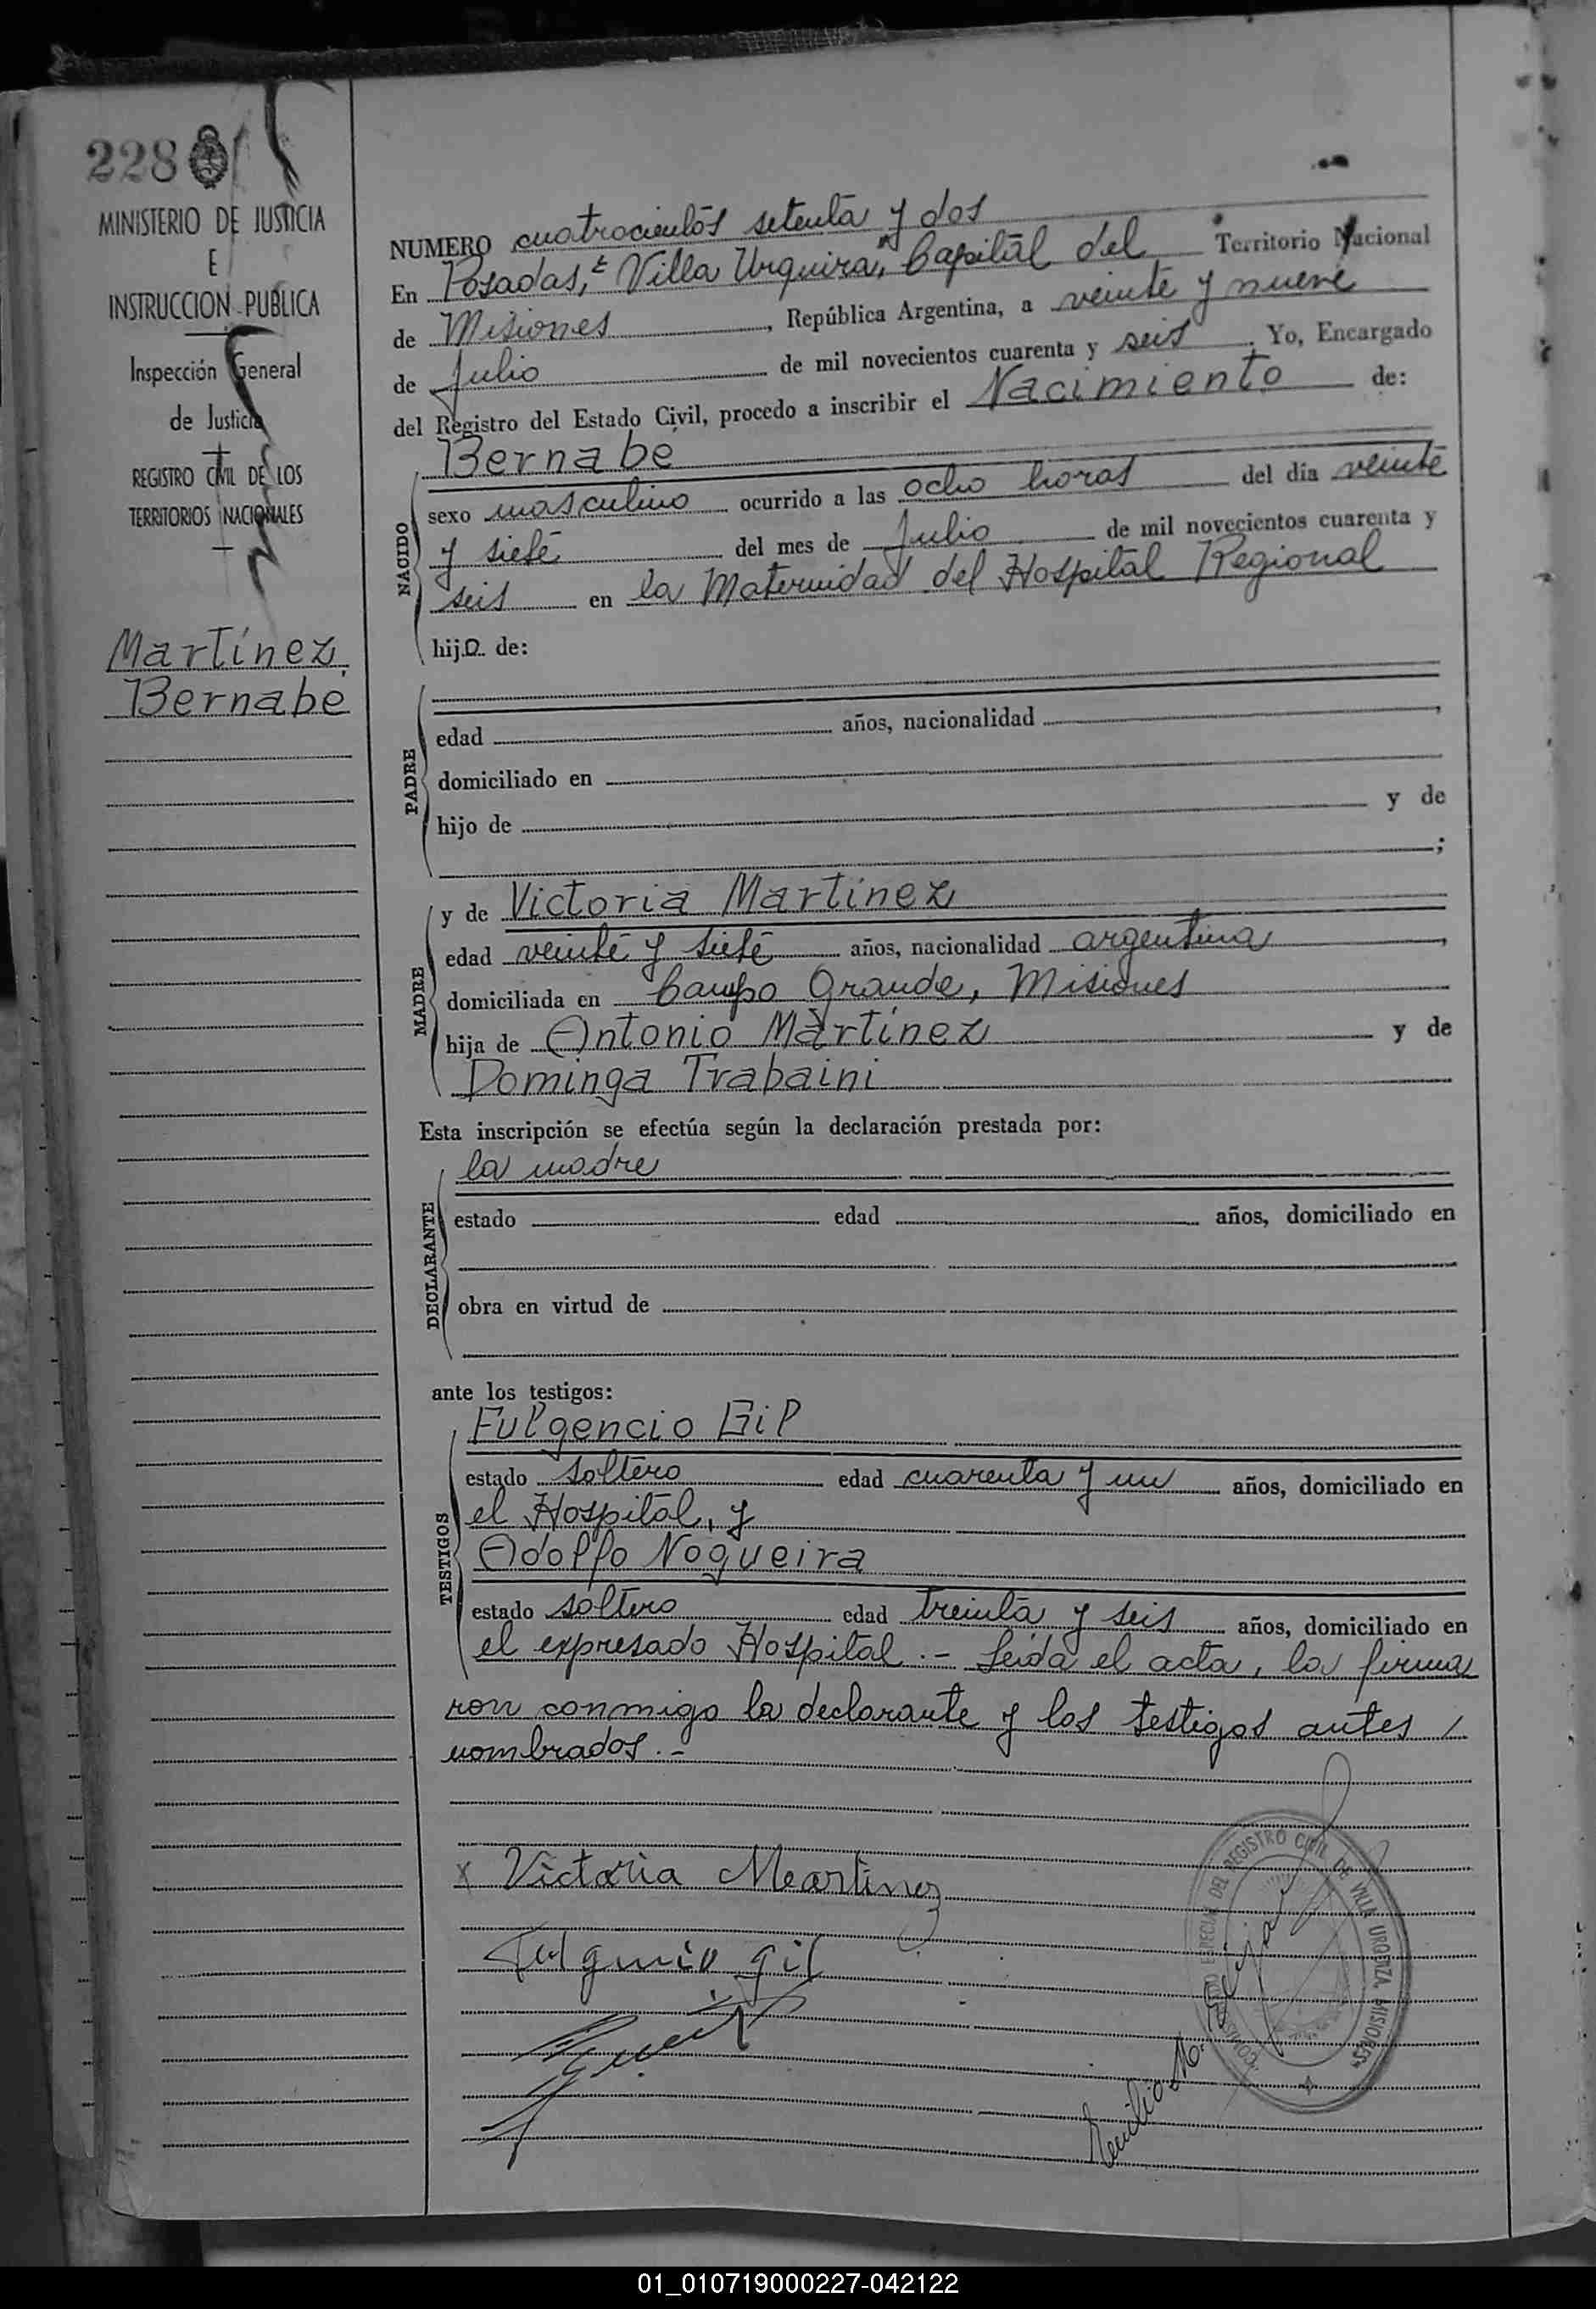 228
MINISTERIO DE JUSTICIA
E
INSTRUCCION PUBLICA
Inspección General
de Justicia
REGISTRO CIVIL DE LOS
TERRITORIOS NACIONALES
Martínez
Bernabé
NUMERO cuatrocientos setenta y dos
En Posadas, "Villa Urquiza", Capital del Territorio Nacional
de Misiones, República Argentina, a veinte y nueve
de Julio de mil novecientos cuarenta y seis. Yo, Encargado
del Registro del Estado Civil, procedo a inscribir el Nacimiento de:
NACIDO
Bernabé
sexo masculino ocurrido a las ocho horas del día veinte
y siete del mes de Julio de mil novecientos cuarenta y
seis en la Maternidad del Hospital Regional
hijo de:
PADRE
edad años, nacionalidad ,
domiciliado en
hijo de y de
;
MADRE
y de Victoria Martínez
edad veinte y siete años, nacionalidad argentina,
domiciliada en Campo Grande, Misiones
hija de Antonio Martínez y de
Dominga Trabaini
Esta inscripción se efectúa según la declaración prestada por:
DECLARANTE
la madre
estado edad años, domiciliado en
obra en virtud de
ante los testigos:
TESTIGOS
Fulgencio Gil
estado soltero edad cuarenta y un años, domiciliado en
el Hospital, y
Adolfo Nogueira
estado soltero edad treinta y seis años, domiciliado en
el expresado Hospital.- Leída el acta, la firma
ron conmigo la declarante y los testigos antes /
nombrados.-
x Victoria Martinez
Fulgencio Gil
Emilio M.
REGISTRO CIVIL DE VILLA URQUIZA, MISIONES
01_010719000227-042122